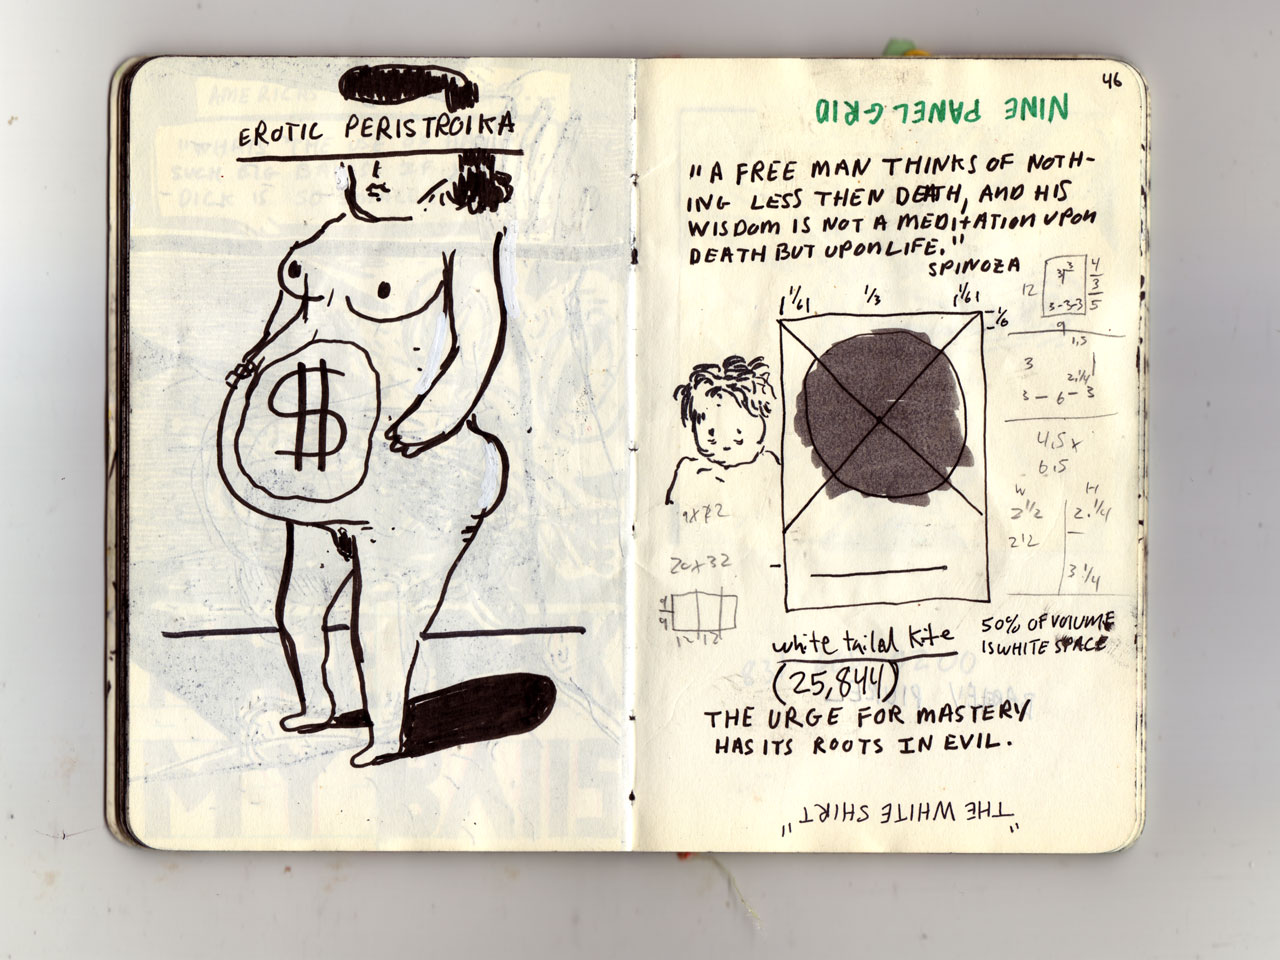 EROTIC PERISTROIKA
$
46
NINE PANEL GRID
"A FREE MAN THINKS OF NOTH-
ING LESS THEN DEATH, AND HIS
WISDOM IS NOT A MEDITATION UPON
DEATH BUT UPON LIFE."
SPINOZA
1/61 1/3 1/61
1/6
12
3 3
4
3
5
3-3-3
9
1,5
3
2 1/4
3 - 6 - 3
4,5 x
6,5
W H
2 1/2 2 1/4
2 1/2
3 1/4
9x12
20x32
9
9
12 12
50% OF VOLUME
IS WHITE SPACE
white tailed kite
(25,844)
THE URGE FOR MASTERY
HAS ITS ROOTS IN EVIL.
"THE WHITE SHIRT"